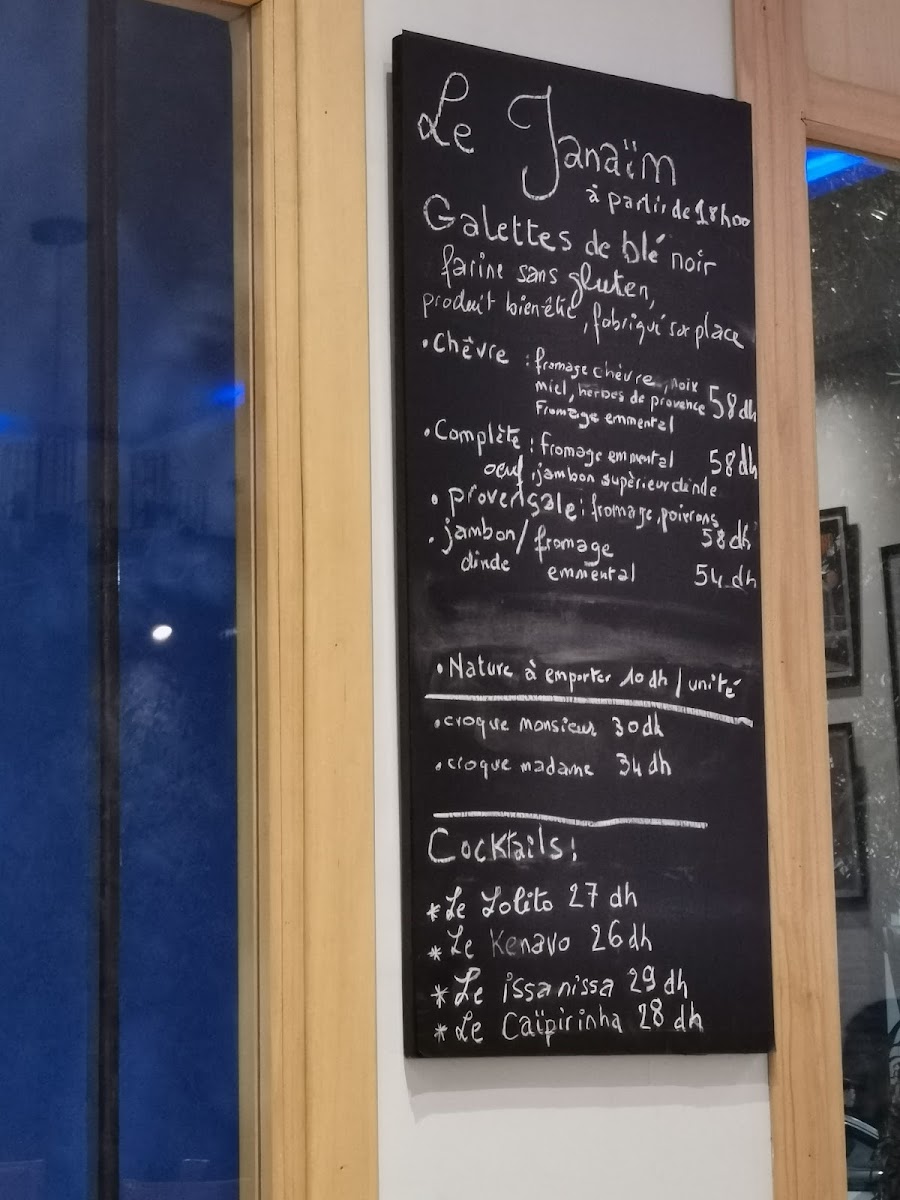 Le Janaïm
à partir de 18h00
Galettes de blé noir
farine sans gluten,
produit bien-être, fabriqué sur place
• Chêvre : fromage chèvre, noix
miel, herbes de provence 58 dh
Fromage emmental
• Complète : fromage emmental 58 dh
oeuf, jambon supèrieur dinde
• provençale : fromage, poivrons
58 dh
• jambon / fromage
dinde emmental 54 dh
• Nature à emporter 10 dh / unité
• croque monsieur 30 dh
• croque madame 34 dh
Cocktails :
* Le Lolito 27 dh
* Le Kenavo 26 dh
* Le issanissa 29 dh
* Le Caïpirinha 28 dh